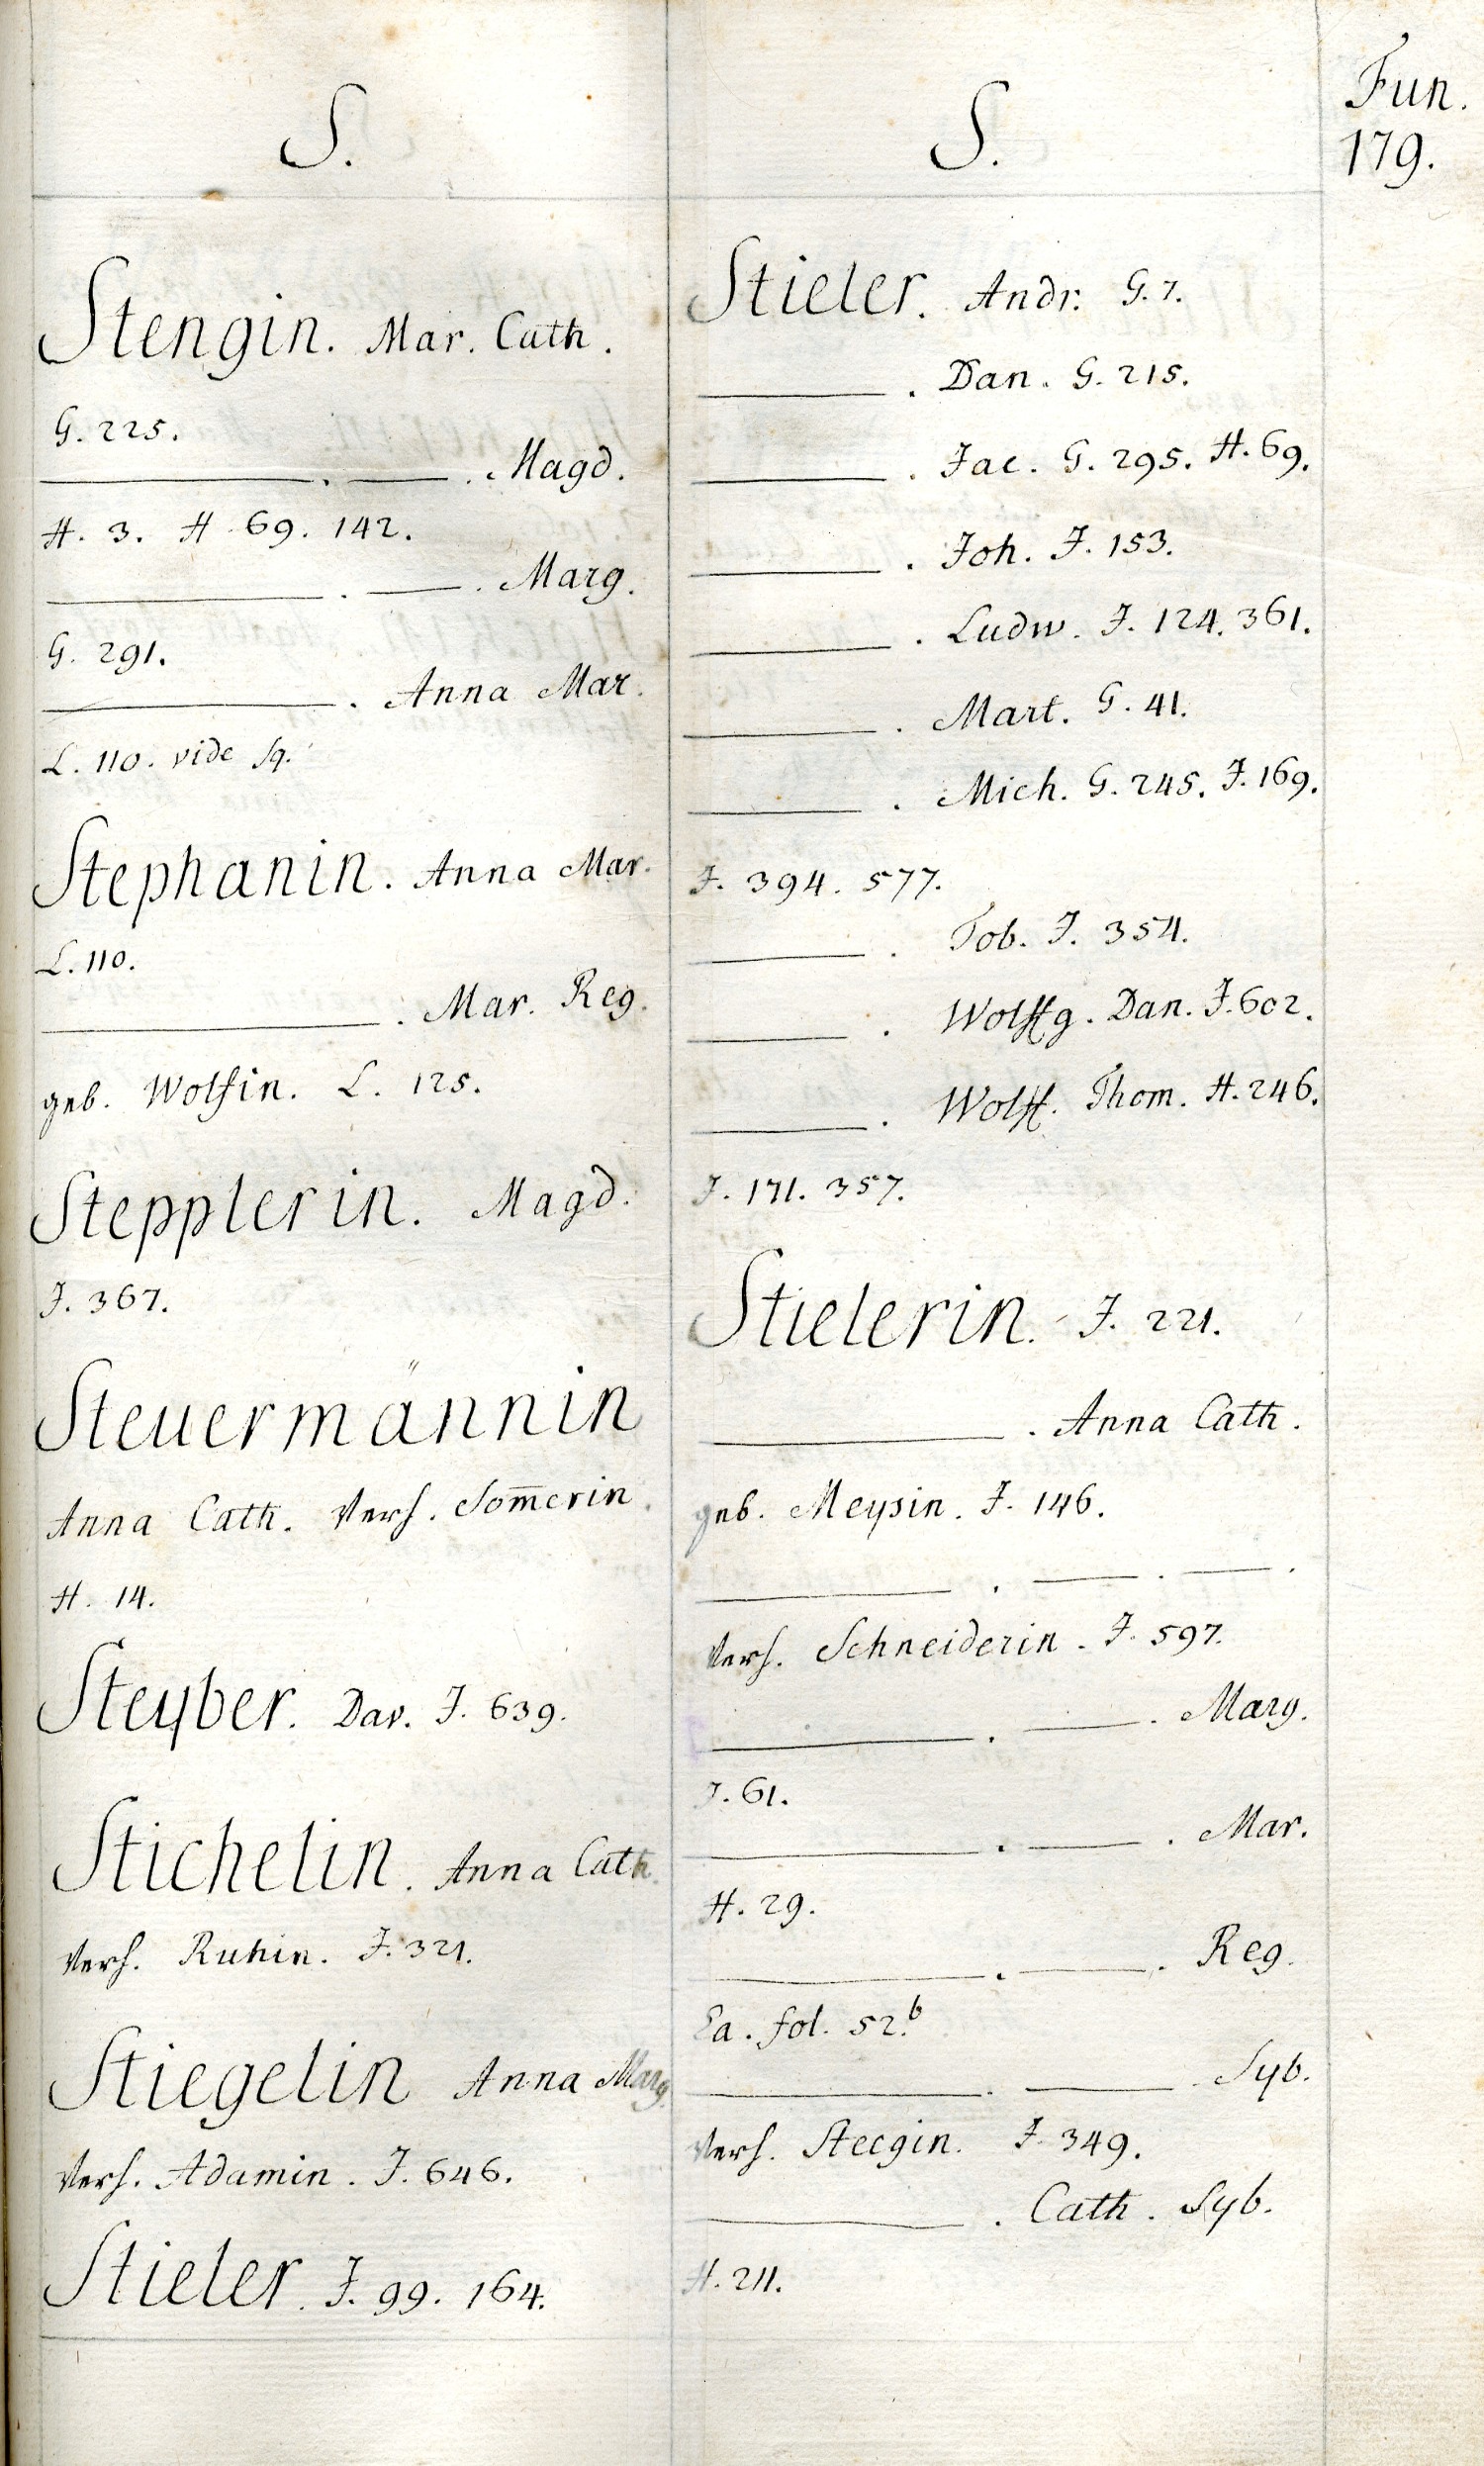 Fun.
179.
S.
Stengin. Mar. Cath.
G. 225.
———. ———. Magd.
H. 3. H. 69. 142.
———. ———. Marg.
G. 291.
———. Anna Mar.
L. 110. vide sq.
Stephanin. Anna Mar.
L. 110.
———. Mar. Reg.
geb. Wolfin. L. 125.
Stepplerin. Magd.
J. 367.
Steuermännin
Anna Cath. Verh. Som̅erin.
H. 14.
Steyber. Dav. J. 639.
Stichelin. Anna Cath.
Verh. Ruhin. J. 321.
Stiegelin Anna Marg.
Verh. Adamin. J. 646.
Stieler. J. 99. 164.
S.
Stieler. Andr. G. 7.
———. Dan. G. 215.
———. Jac. G. 295. H. 69.
———. Joh. J. 153.
———. Ludw. J. 124. 361.
———. Mart. G. 41.
———. Mich. G. 245. J. 169.
J. 394. 577.
———. Tob. J. 354.
———. Wolffg. Dan. J. 602.
———. Wolff. Thom. H. 246.
J. 171. 357.
Stielerin. J. 221.
———. Anna Cath.
geb. Meysin. J. 146.
———. ———. ———.
Verh. Schneiderin. J. 597.
———. ———. Marg.
J. 61.
———. ———. Mar.
H. 29.
———. ———. Reg.
Ea. fol. 52.b
———. ———. Syb.
Verh. Steegin. J. 349.
———. Cath. Syb.
H. 211.